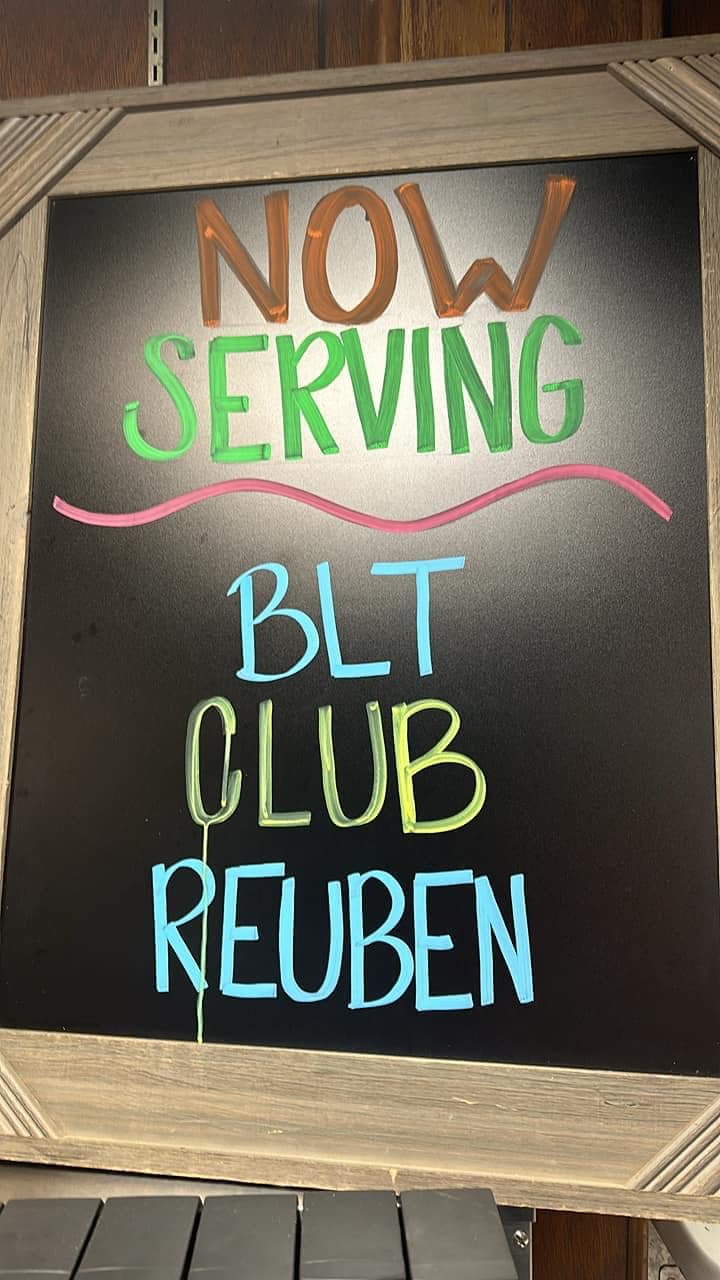 NOW
SERVING
BLT
CLUB
REUBEN